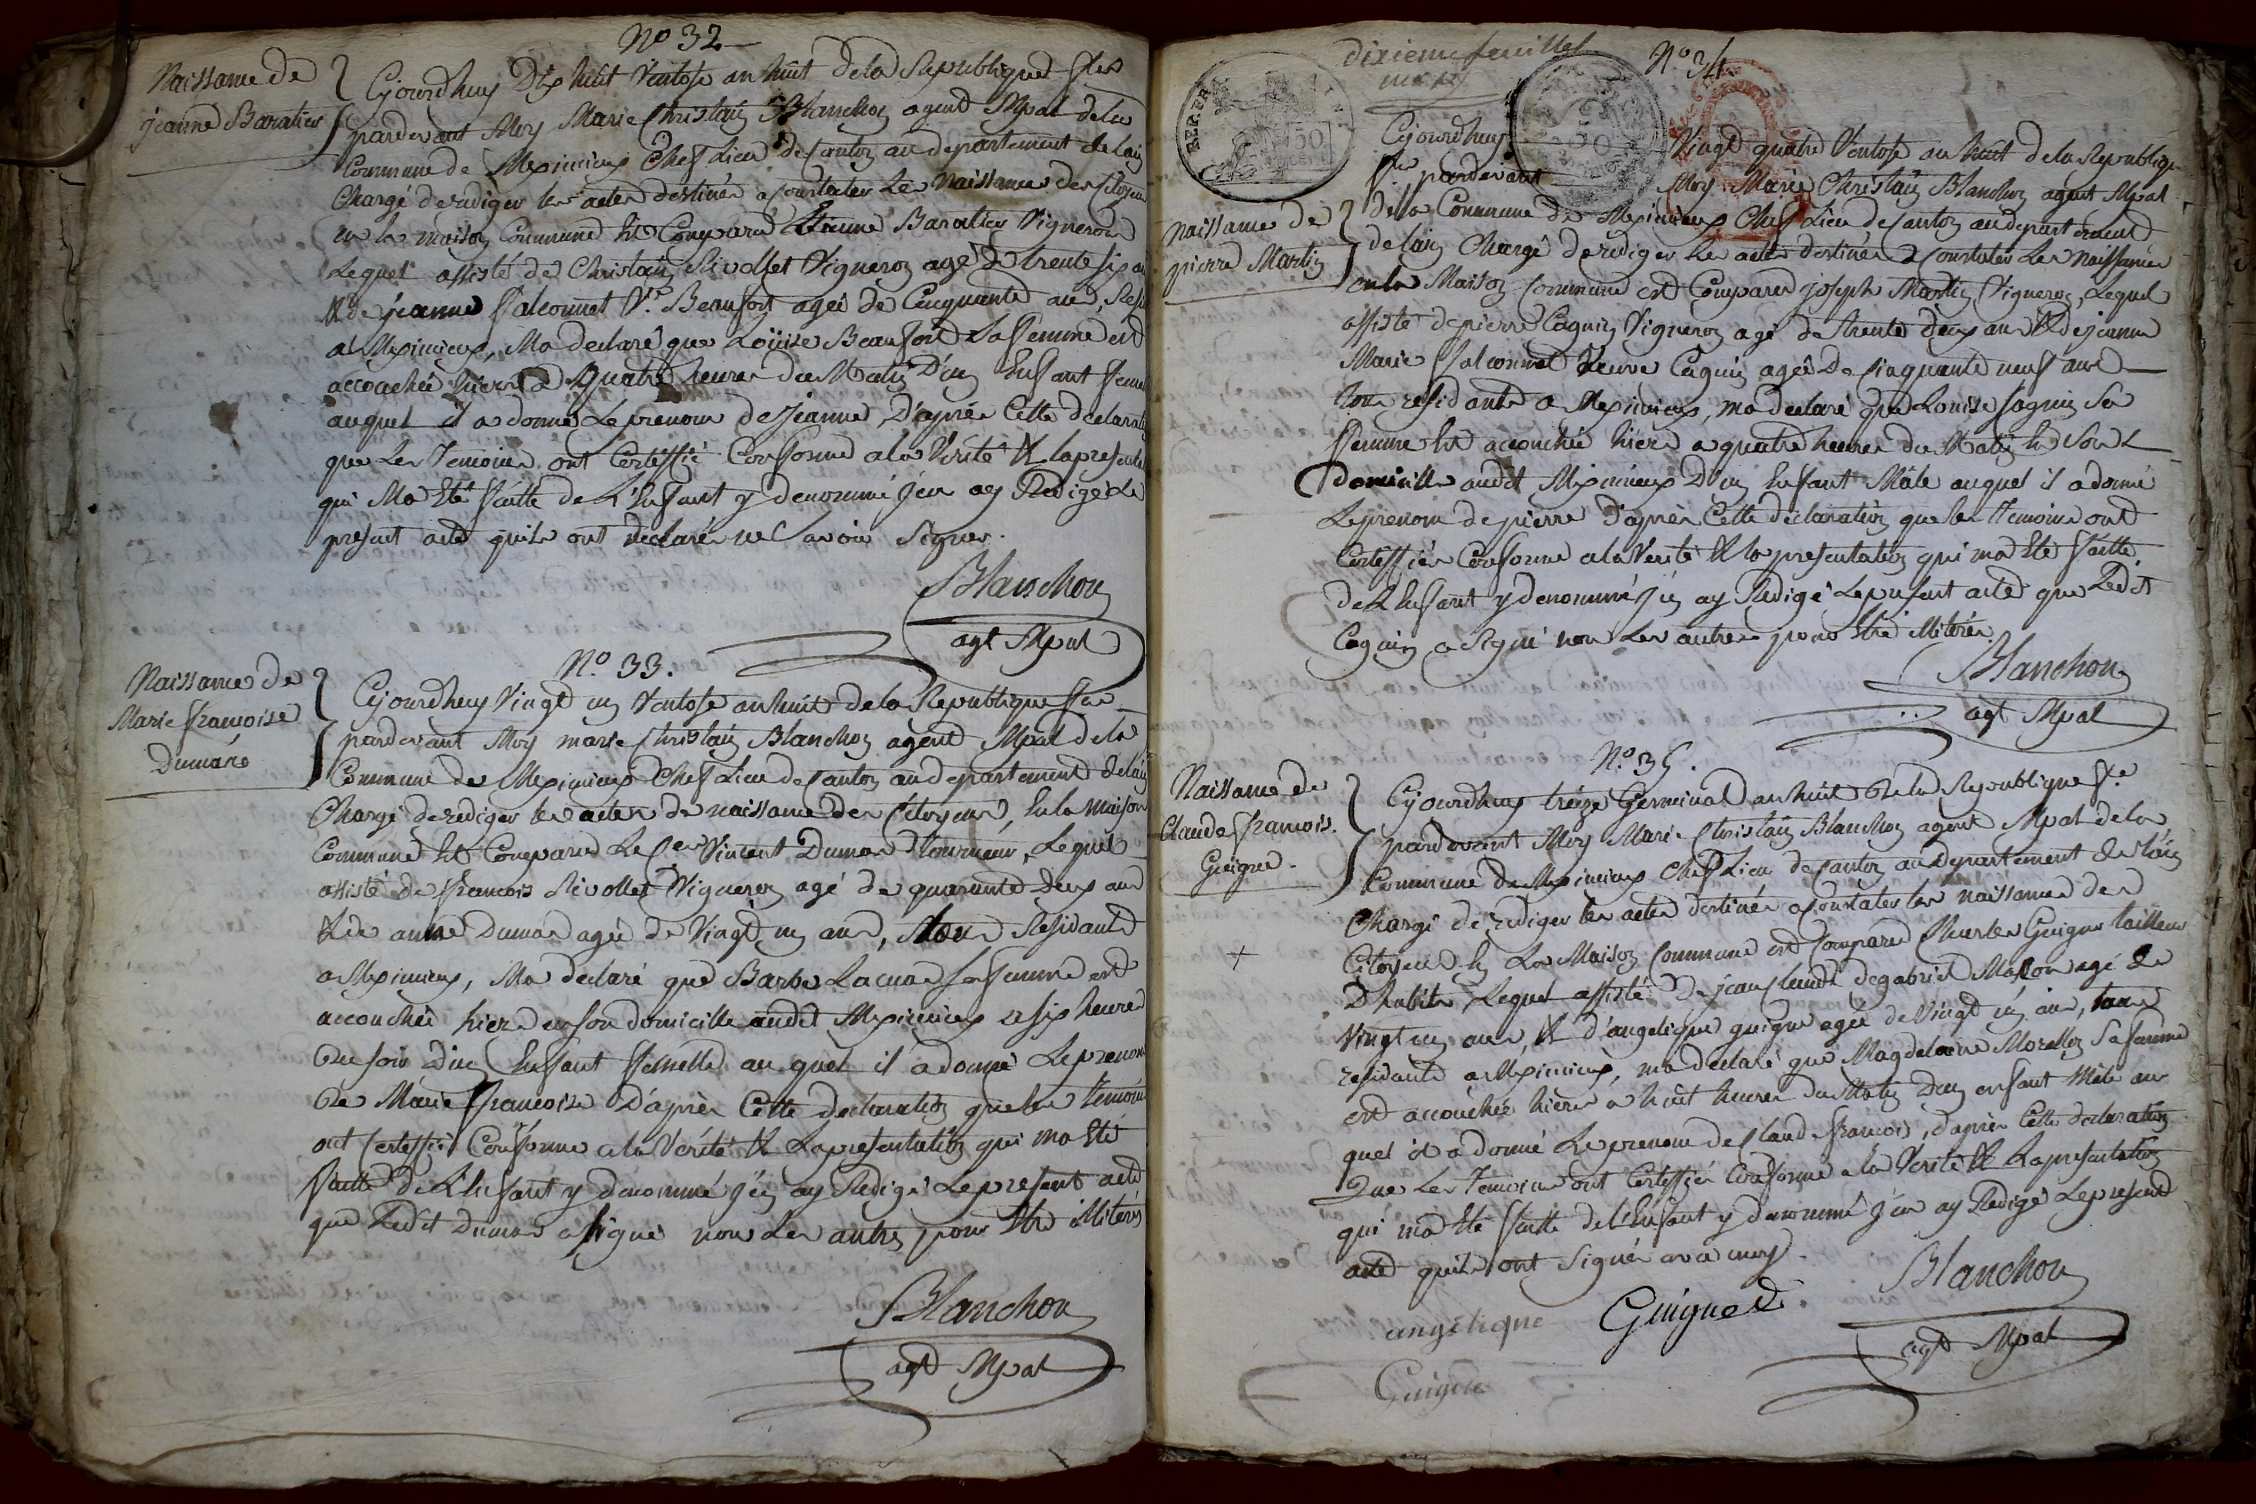 N.º 32
Naissance de
jeanne Baratier
Cejourdhuy Dix huit Ventose an huit de la Republique fse
pardevant Moy Marie Christain Blanchon agent Mpal de la
Commune de Meximieux Chef Lieu de Canton au departement de lain
Chargé de rediger les actes destinés a Constater Les Naissances des Citoyens
en la maison Commune Est Comparu Etienne Baratier Vigneron
Lequel assisté de Christain Rivollet Vigneron agé de trente six ans
& de jeanne falconnet Ve. Beaufort agée de Cinquante ans,
a Meximieux, Ma declaré que Loüise Beaufort Sa femme est
accouchée hiere a Quatre heures du Matin D'un Enfant
auquel il a donné Le prenom de Jeanne, D'après Cette declaration
que Les Temoins ont Certiffié Conforme a la Verité & la presentation
qui Ma Eté faitte de L'Enfant y denommé j'en ay Redigé Le
present acte quils ont declarés ne Savoir Signer.
Blanchon
agt Mpal
N.º 33.
Naissance de
Marie françoise
Dumàrs
Cejourdhuy Vingt un Ventose an huit de la Republique fse
pardevant Moy marie Christain Blanchon agent Mpal de la
Commune de Meximieux Chef Lieu de Canton au departement de lain
Chargé de rediger les actes de naissance des Citoyens, En la maison
Commune Est Comparu Le Cen Vincent Dumar Tourneur, Lequel
assisté de francois Rivollet Vigneron agé de quarante Deux ans
& de anne Dumar agée de Vingt un ans, Tous Residants
a Meximieux, Ma declaré que Barbe Lacune sa femme est
accouchée hiere en son domicille audit Meximieux a six heures
du soir D'un Enfant femelle auquel il a donné Le prenom
de Marie françoise D'après Cette declaration que les temoins
ont Certiffié Conforme a la Vérité & La presentation qui ma Eté
faitte de L'Enfant y denommé j'en ay Redigé Le present acte
que Ledit Dumar a signé non Les autres pour Etre illiterés
Blanchon
agt Mpal
dixieme feuillet
N.º 34
REP. FRA
50
Cejourdhuy Vingt quatre Ventose an huit de la Republique
fse pardevant Moy Marie Christain Blanchon agent Mpal
Naissance de
pierre Martin
de la Commune de Meximieux Chef Lieu de Canton au departement
de lain Chargé de rediger Les actes destinés a Constater Les Naissances
en la Maison Commune est Comparu joseph Martin Vigneron, Lequel
assisté de pierre Cagnin Vigneron agé de trente deux ans & de jeanne
Marie falconnet Veuve Cagnin agée De Cinquante neuf ans
Tous residants a Meximieux, ma declaré que Louise Cagnin Sa
femme Est accouchée hiere a quatre heures du Matin En Son
domicille audit Meximieux D'un Enfant Mâle auquel il a donné
Le prenom de pierre D'après Cette declaration que les Temoins ont
Certiffiés Conforme a la Verité & la presentation qui ma Eté faitte
de L'Enfant y denommé j'en ay Redigé Le present acte que Ledit
Cagnin a Signé non Les autres pour Etre illiterés
Blanchon
agt Mpal
N.º 35.
Naissance de
Claude françois
Guigue
Cejourdhuy treize Germinal an huit de la Republique fse
pardevant Moy Marie Christain Blanchon agent Mpal de la
Commune de Meximieux Chef Lieu de Canton au Departement de lain
Chargé de rediger les actes destinés a Constater les naissances des
Citoyens En La Maison Commune est Comparu Charles Guigue tailleur
D'habits, Lequel assisté De jean Claude de gabriel Masson agé de
Vingt un ans, & d'angelique guigue agée de Vingt un ans, tous
residants a Meximieux, ma declaré que Magdelaine Morellon Sa femme
est accouchée hiere a huit heures du Matin D'un enfant Mâle au
quel il a donné Le prenom de Claude françois, d'après Cette declaration
Que Les Temoins ont Certiffiés Conforme a la Verité & La presentation
qui ma Eté faitte de l'Enfant y denommé j'en ay Redigé Le present
acte quils ont Signés avec moy.
Blanchon
agt Mpal
Guigue
angelique
Guigue